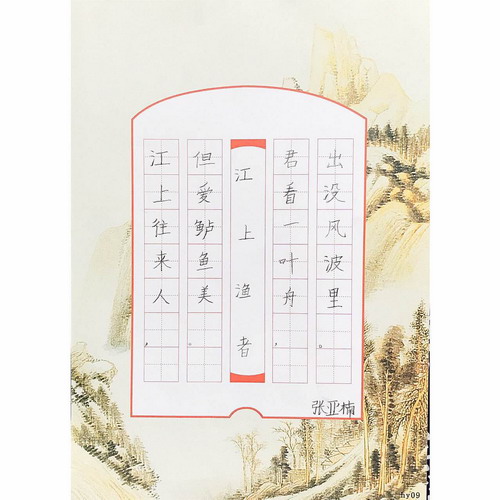 江上往来人，
但爱鲈鱼美。
江上渔者
君看一叶舟，
出没风波里。
张亚楠
hy09